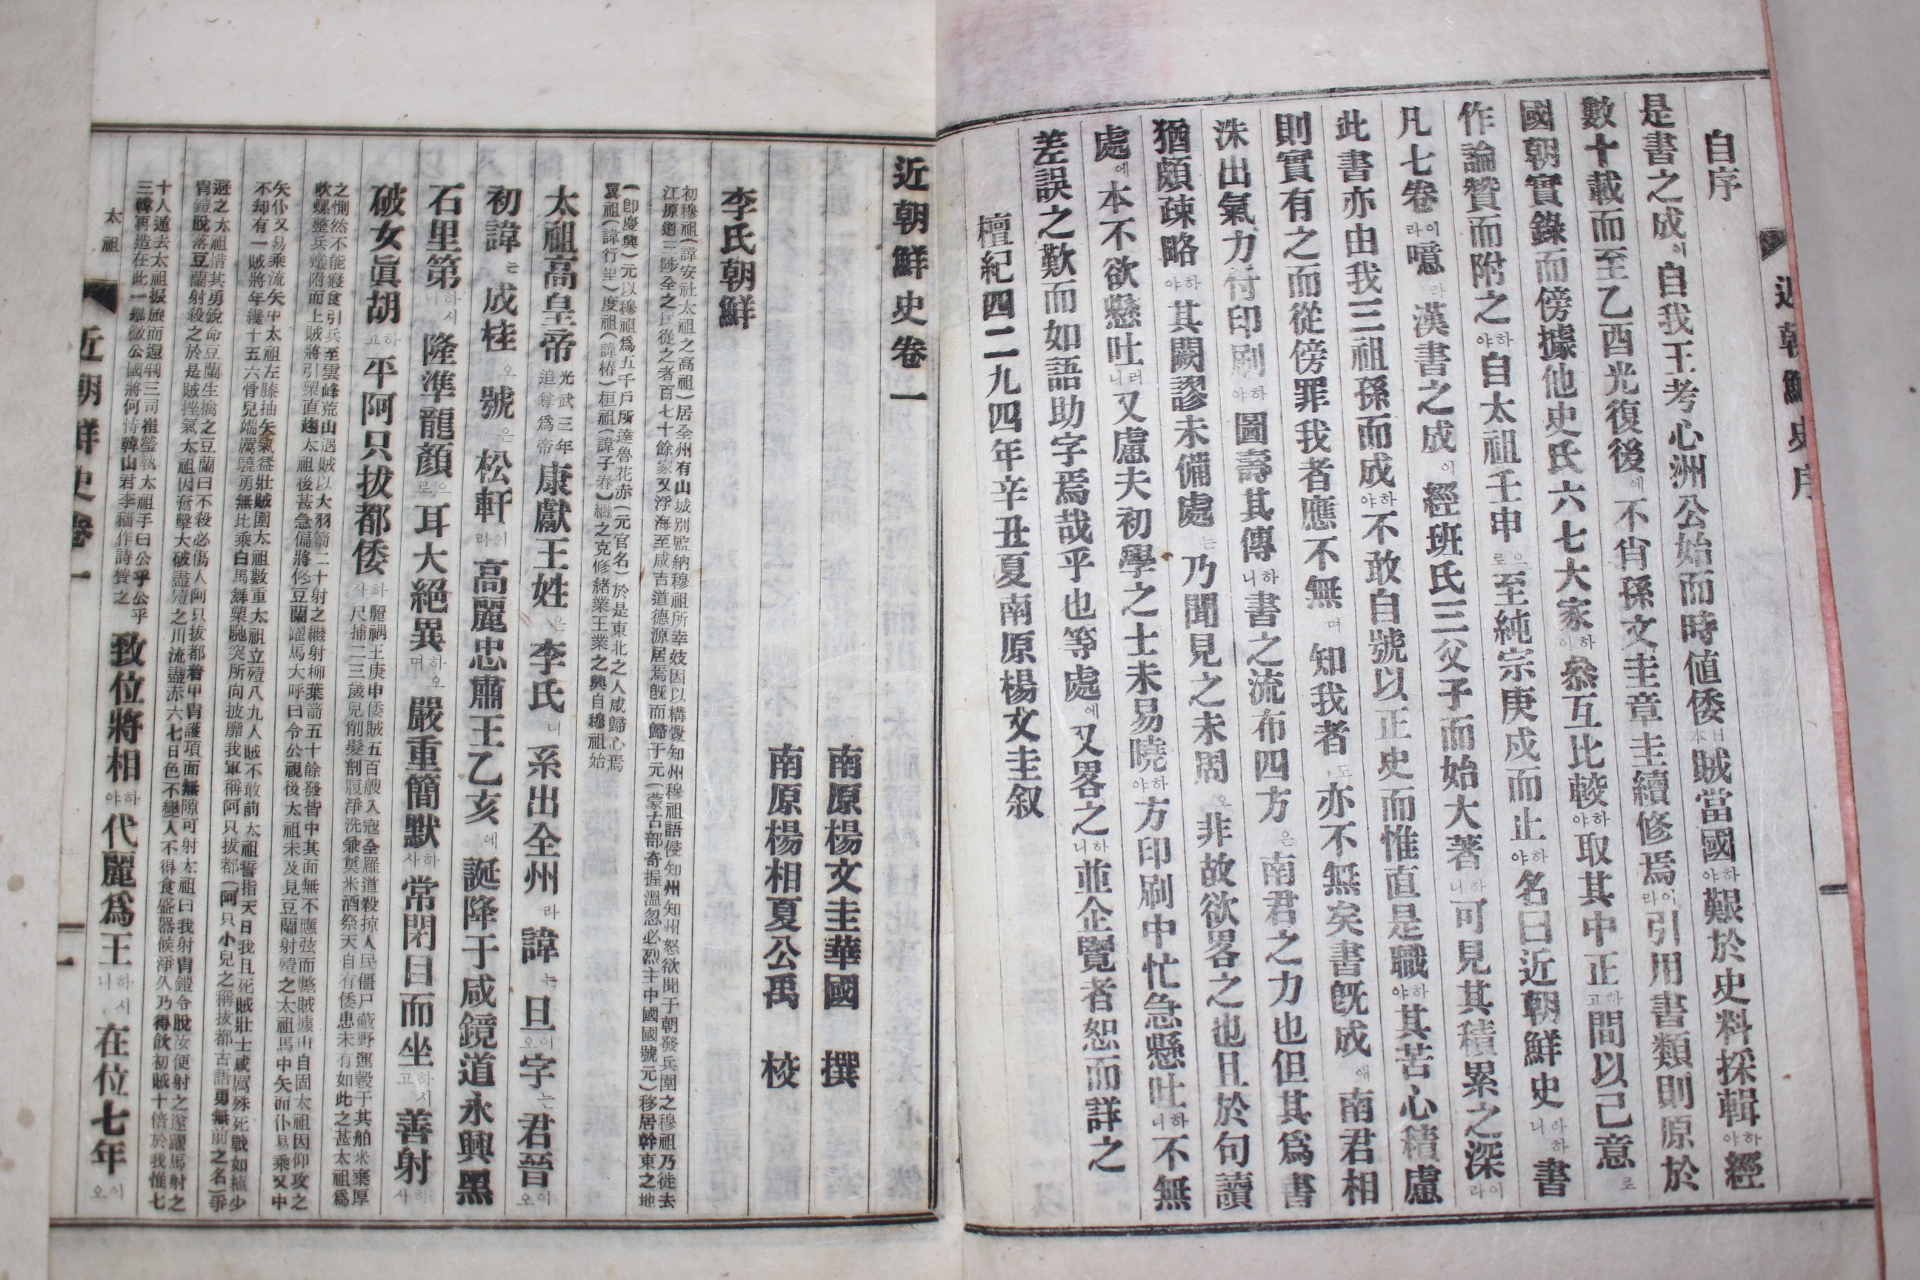 近朝鮮史序
自序
是書之成이自我王考心洲公始而時値倭日本賊當國하야艱於史料採輯하야經
數十載而至乙酉光復後에不肖孫文圭章圭續修焉이라引用書類則原於
國朝實錄而傍據他史氏六七大家하야叅互比較하야取其中正하고間以己意로
作論贊而附之하야自太祖壬申으로至純宗庚戍而止하야名曰近朝鮮史하니라書
凡七卷이라噫라漢書之成이經班氏三父子而始大著하니可見其積累之深이라
此書亦由我三祖孫而成하야不敢自號以正史而惟直是職하야其苦心積慮
則實有之而從傍罪我者應不無며知我者도亦不無矣書旣成애南君相
洙出氣力付印刷하야圖壽其傳하니書之流布四方은南君之力也但其爲書
猶頗疎略하야其闕謬未備處는乃聞見之未周오非故欲畧之也且於句讀
處에本不欲懸吐러니又慮夫初學之士未易曉하야方印刷中忙急懸吐하니不無
差誤之歎而如語助字焉哉乎也等處에又畧之하니並企覽者恕而詳之
檀紀四二九四年辛丑夏南原楊文圭叙
近朝鮮史卷一
南原楊文圭華國 撰
南原楊相夏公禹 校
李氏朝鮮
初穆祖(諱安社太祖之高祖)居全州有山城別監納穆祖所幸妓因以構釁知州穆祖語侵知州知州怒欲聞于朝發兵圍之穆祖乃徙去
江原道三陟全之民從之者百七十餘家又浮海至咸吉道德源居焉旣而歸于元(蒙古部奇握溫忽必烈主中國國號元)移居幹東之地
(卽慶興)元以穆祖爲五千戶所達魯花赤(元官名)於是東北之人咸歸心焉
翼祖(諱行里)度祖(諱椿)桓祖(諱子春)繼之克修緖業王業之興自穆祖始
太祖高皇帝光武三年追尊爲帝康獻王姓은李氏니系出全州라諱는旦이오字는君晉이오
初諱는成桂오號은松軒이라高麗忠肅王乙亥에誕降于咸鏡道永興黑
石里第하시니隆準龍顏으로耳大絕異하오며嚴重簡默하사常閉目而坐하시고善射하사
破女眞胡하고平阿只拔都倭하사麗禑王庚申倭賊五百艘入寇全羅道殺掠人民僵尸蔽野運穀于其船米棄厚
尺捕二三歲兒削髮剖腹淨洗兼奠米酒祭天自有倭患未有如此之甚太祖爲
之惻然不能寢食引兵至雲峰荒山遇賊以大羽箭二十射之繼射柳葉箭五十餘發皆中其面無不應弦而斃賊據山自固太祖因仰攻之
吹螺整兵蟻附而上賊將引槊直趨太祖後甚急偏將佟豆蘭躍馬大呼曰令公視後太祖未及見豆蘭射殪之太祖馬中矢而仆易乘又中
矢仆又易乘流矢中太祖左膝抽矢氣益壯賊圍太祖數重太祖立殪八九人賊不敢前太祖誓指天日我且死賊壯士咸厲殊死戰如植少
不却有一賊將年纔十五六骨兒端厲驍勇無比乘白馬舞槊馳突所向披靡我軍稱阿只拔都(阿只小兒之稱拔都古語勇無前之名)爭
避之太祖惜其勇銳命豆蘭生擒之豆蘭曰不殺必傷人阿只拔都着甲冑護項面無隙可射太祖曰我射冑鎧令脫汝便射之遂躍馬射之
冑鎧脫落豆蘭射殺之於是賊挫氣太祖因奮擊大破盡殪之川流盡赤六七日色不變人不得食盛器候淨久乃得飮初賊十倍於我惟七
十人遁去太祖振旅而還判三司崔瑩執太祖手曰公乎公乎
三韓再造在此一擧微公國將何恃韓山君李穡作詩賀之致位將相하야代麗爲王하시니在位七年이오
太祖
近朝鮮史卷一
一